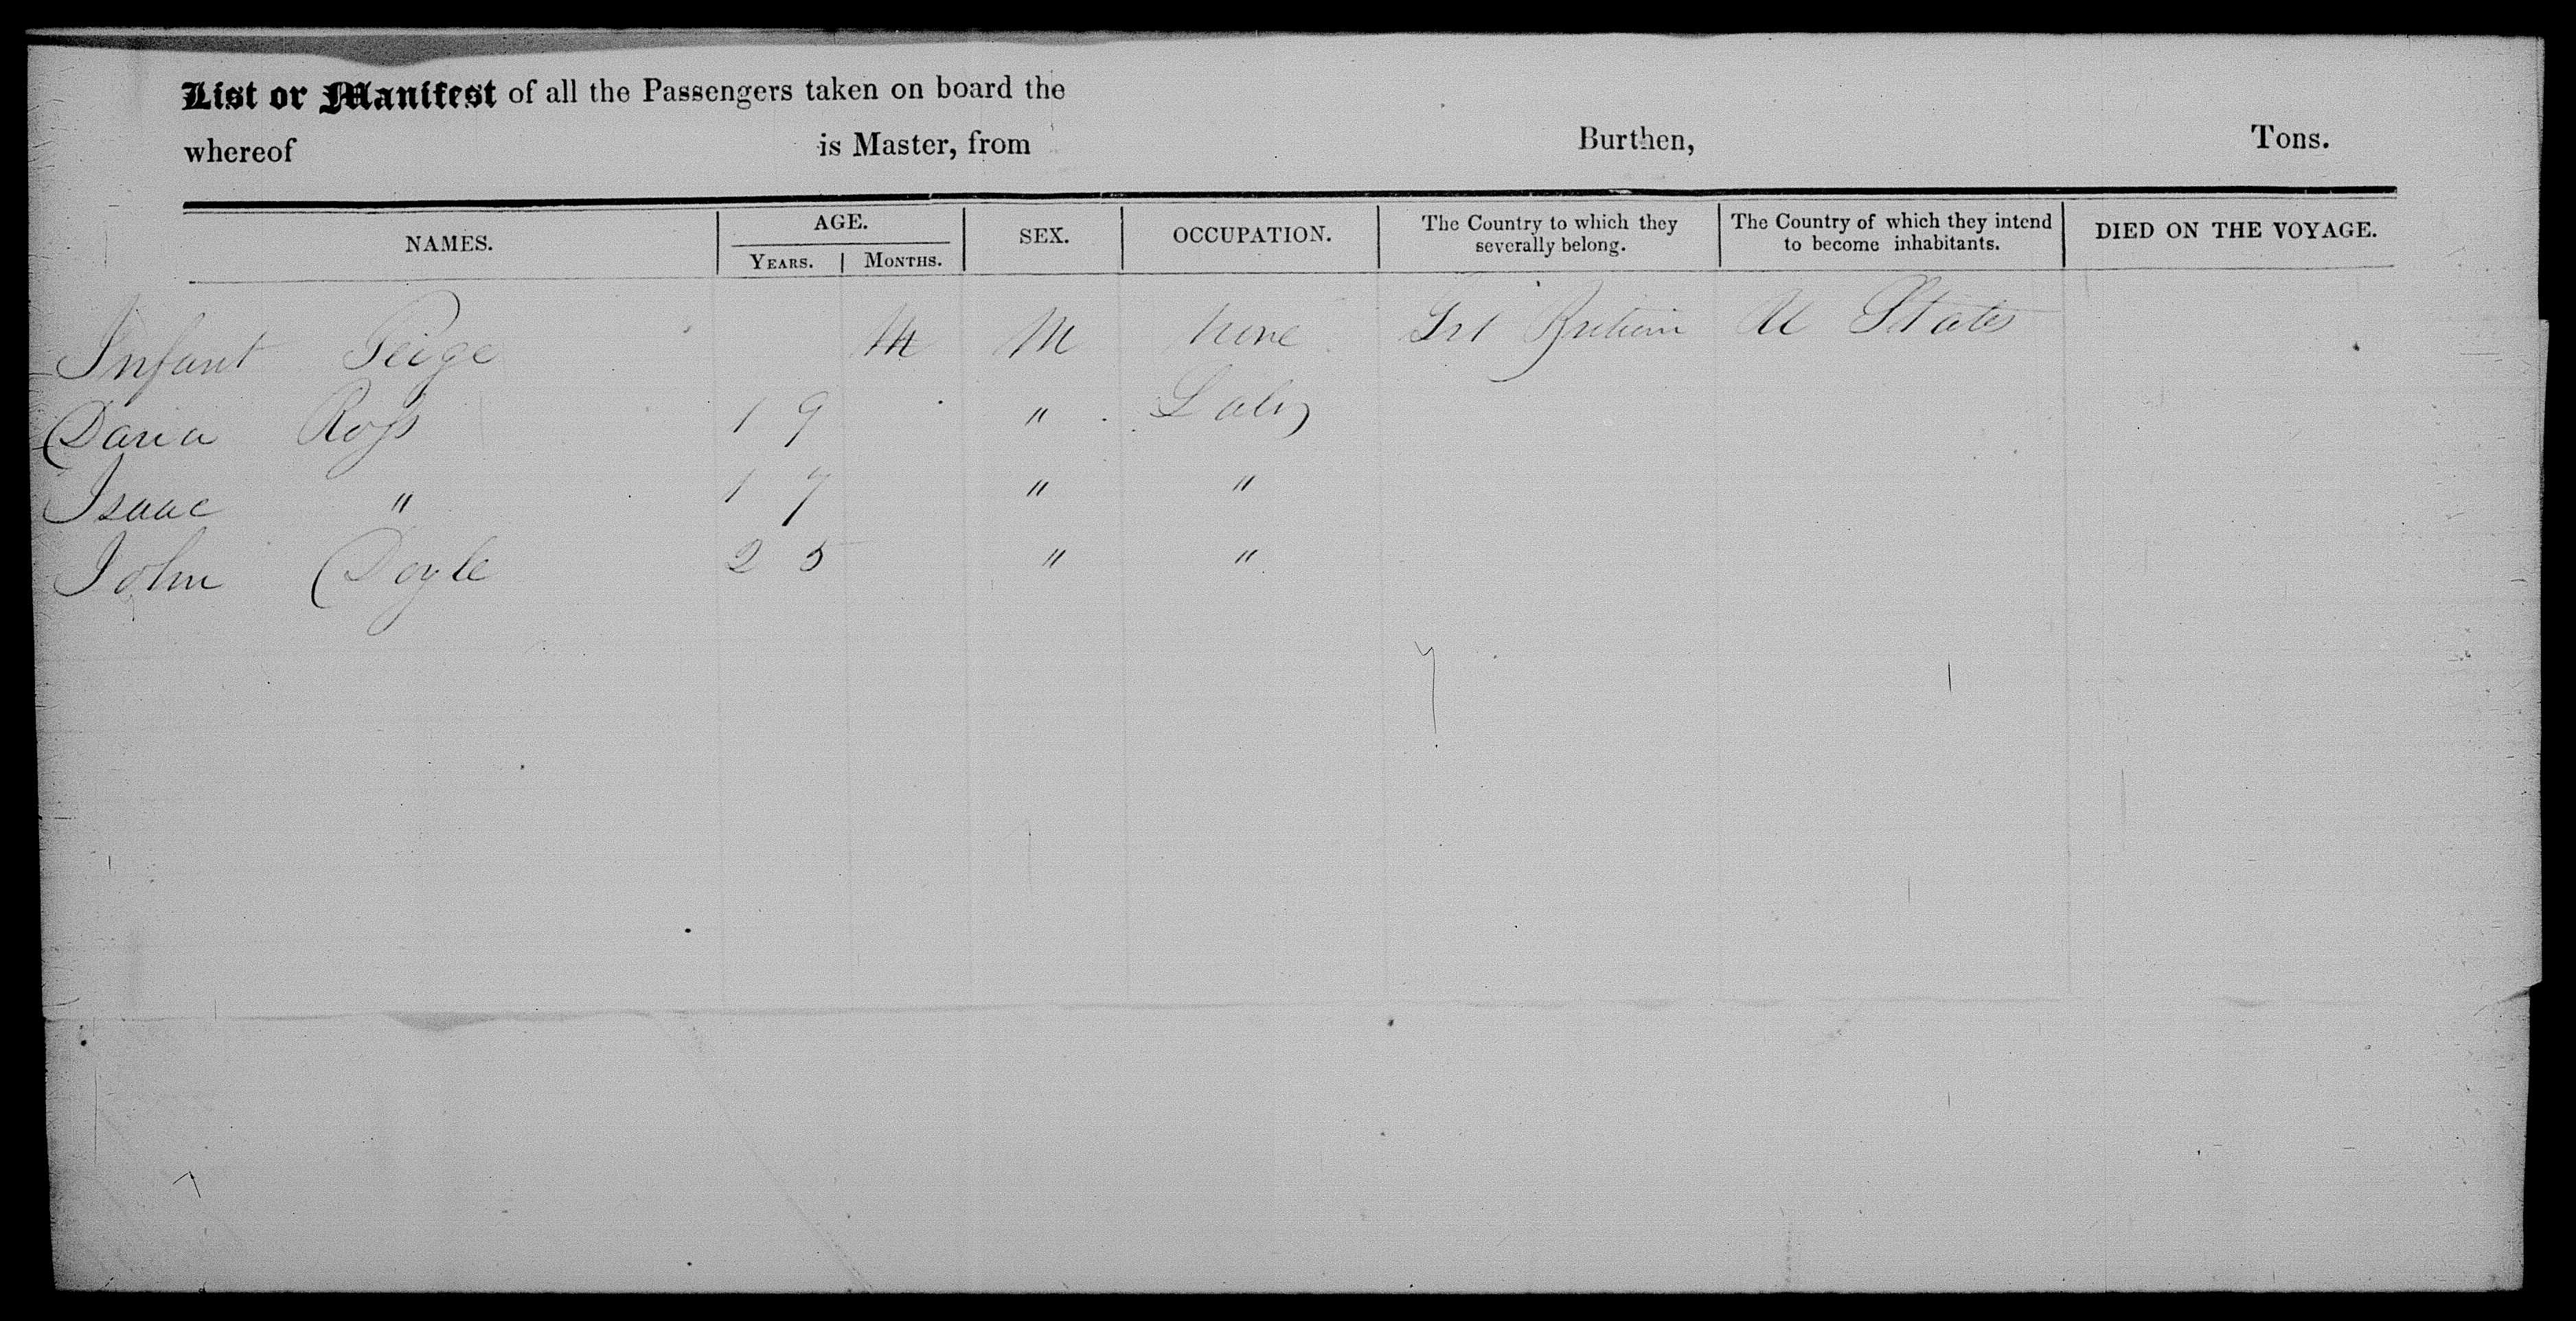 List or Manifest of all the Passengers taken on board the
whereof is Master, from Burthen, Tons.
NAMES. AGE. SEX. OCCUPATION. The Country to which they severally belong. The Country of which they intend to become inhabitants. DIED ON THE VOYAGE.
YEARS. MONTHS.
Infant Peige M None Grt Britain U States
Ross 19 " Labr
Isaac " 17 " "
John Doyle 25 " "